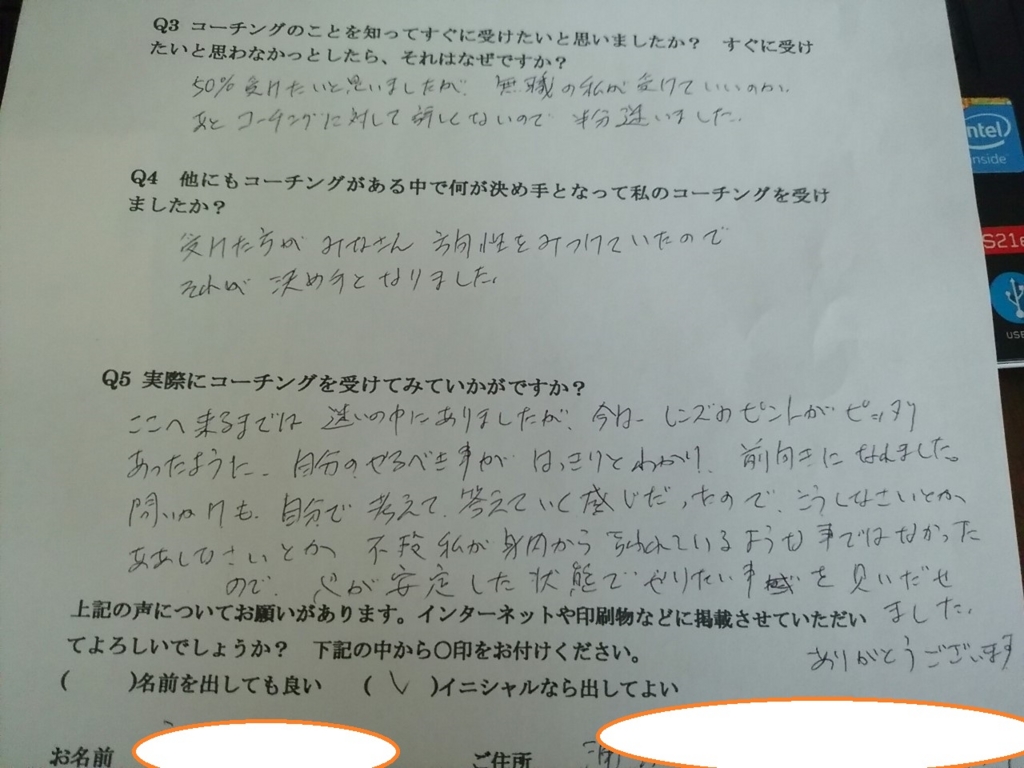 Q3 コーチングのことを知ってすぐに受けたいと思いましたか？ すぐに受け
たいと思わなかっとしたら、それはなぜですか？
50%受けたいと思いましたが、無職の私が受けていいのか、
あとコーチングに対して詳しくないので半分迷いました。
Q4 他にもコーチングがある中で何が決め手となって私のコーチングを受け
ましたか？
受けた方がみなさん方向性をみつけていたので
それが決め手となりました。
Q5 実際にコーチングを受けてみていかがですか？
ここへ来るまでは迷いの中にありましたが、今は、レンズのピントがピッタリ
あったように、自分のやるべき事がはっきりとわかり、前向きになれました。
問いかけも、自分で考えて、答えていく感じだったので、こうしなさいとか、
ああしなさいとか、不段私が身内から言われているような事ではなかった
ので、心が安定した状態でやりたい事を見いだせ
ました。
ありがとうございます
上記の声についてお願いがあります。インターネットや印刷物などに掲載させていただい
てよろしいでしょうか？ 下記の中から〇印をお付けください。
( )名前を出しても良い ( ✓ )イニシャルなら出してよい
お名前 ご住所
intel
inside
USB